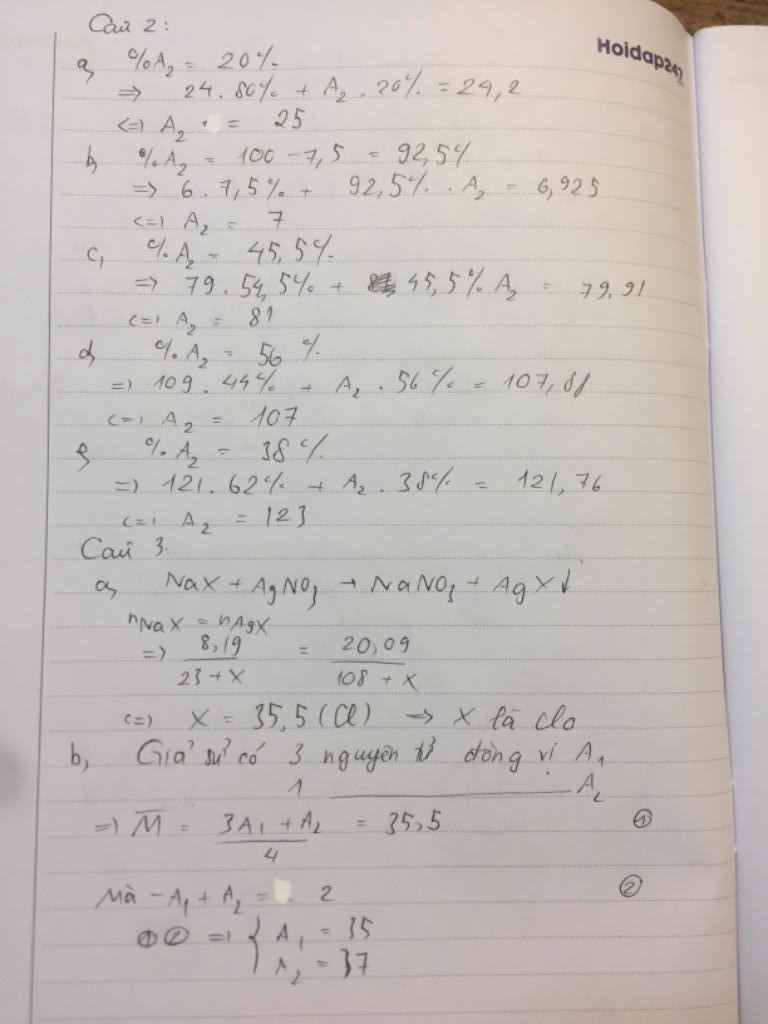 Câu 2:
Hoidap247
a, %A₂ = 20%
=> 24.80% + A₂.20% = 24,2
<=> A₂ = 25
b, %A₂ = 100 - 7,5 = 92,5%
=> 6.7,5% + 92,5%.A₂ = 6,925
<=> A₂ = 7
c, %A₂ = 45,5%
=> 79.54,5% + 45,5% A₂ = 79,91
<=> A₂ = 81
d, %A₂ = 56%
=> 109.44% + A₂.56% = 107,88
<=> A₂ = 107
e, %A₂ = 38%
=> 121.62% + A₂.38% = 121,76
<=> A₂ = 123
Câu 3.
a, NaX + AgNO₃ → NaNO₃ + AgX↓
nNaX = nAgX
=> 8,19 / (23 + X) = 20,09 / (108 + X)
<=> X = 35,5 (Cl) → X là clo
b, Giả sử có 3 nguyên tử đồng vị A₁
1 ———— A₂
=> M̄ = (3A₁ + A₂) / 4 = 35,5 ①
Mà -A₁ + A₂ = 2 ②
①② => { A₁ = 35
A₂ = 37